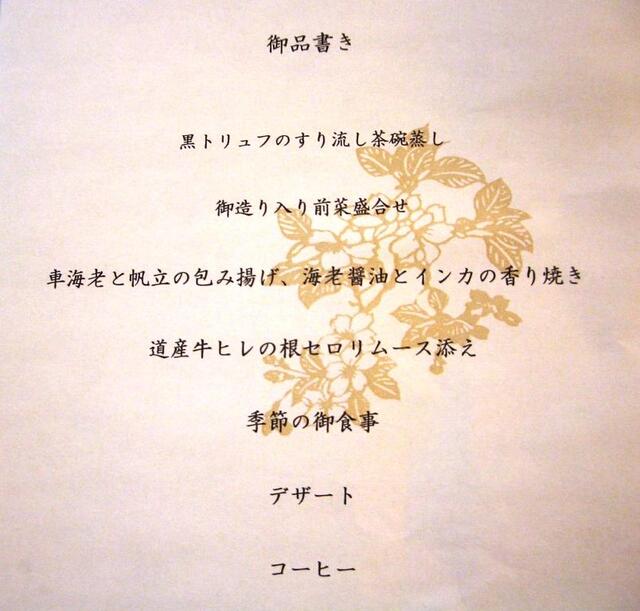 御品書き
黒トリュフのすり流し茶碗蒸し
御造り入り前菜盛合せ
車海老と帆立の包み揚げ、海老醤油とインカの香り焼き
道産牛ヒレの根セロリムース添え
季節の御食事
デザート
コーヒー